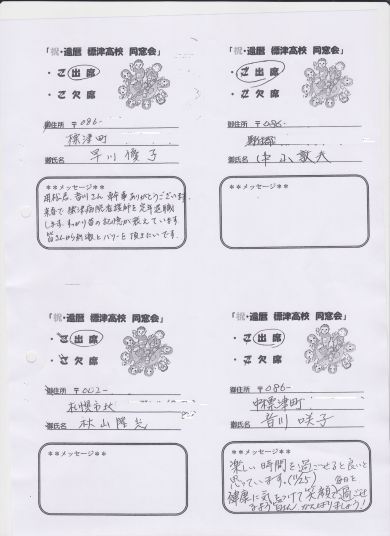 「祝・還暦 標津高校 同窓会」
・ご出席
・ご欠席
御住所 〒086-
標津町
御氏名 早川 優子
**メッセージ**
幹事ありがとうございます。
来春で標津病院看護師を定年退職
します。すっかり昔の記憶が衰えています。
皆さんから刺激とパワーを頂きたいです。
「祝・還暦 標津高校 同窓会」
・ご出席
・ご欠席
御住所 〒086-
御氏名
**メッセージ**
「祝・還暦 標津高校 同窓会」
・ご出席
・ご欠席
御住所 〒002-
札幌市北
御氏名 秋山 隆光
**メッセージ**
「祝・還暦 標津高校 同窓会」
・ご出席
・ご欠席
御住所 〒086-
中標津町
御氏名 音川 咲子
**メッセージ**
楽しい時間を過ごせると良いと
思っています。(11/25) 毎日を
健康に気をつけて笑顔で過ごせ
がんばりましょう!